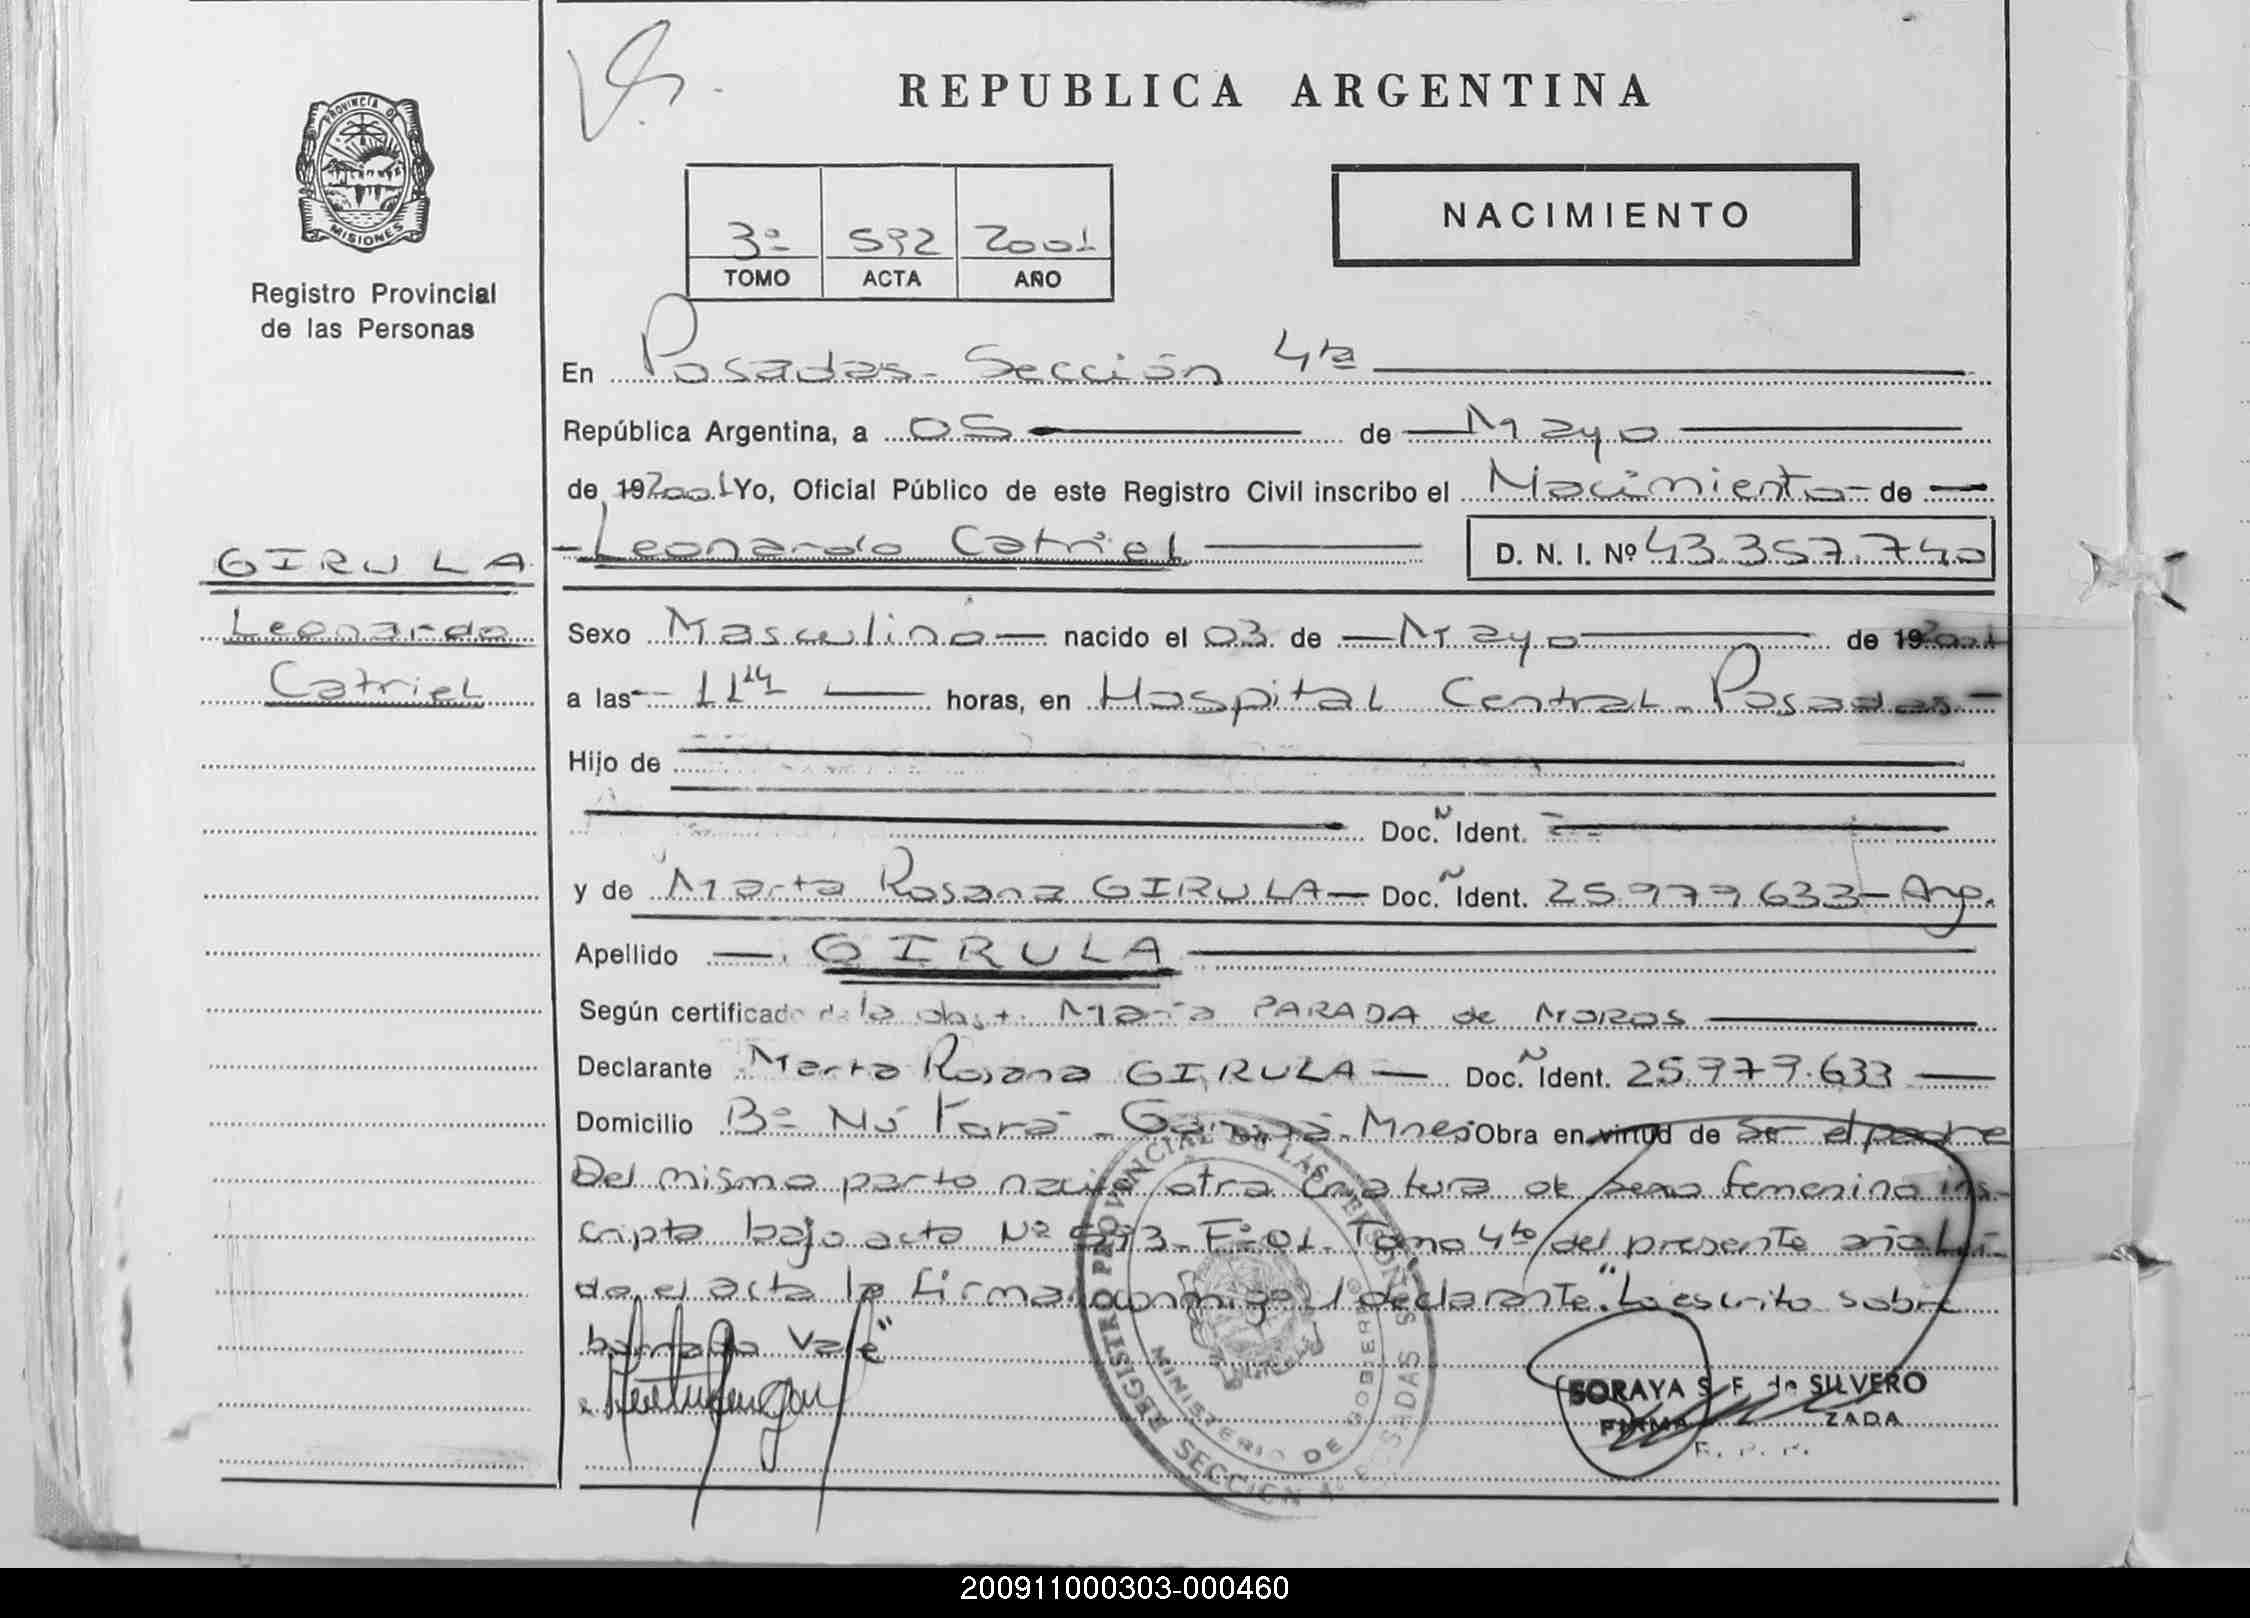 REPUBLICA ARGENTINA
PROVINCIA DE
MISIONES
Registro Provincial
de las Personas
NACIMIENTO
3º 592 2001
TOMO ACTA AÑO
En Posadas - Sección 4ta
República Argentina, a 05 de Mayo
de 19 2001 Yo, Oficial Público de este Registro Civil inscribo el Nacimiento de
Leonardo Catriel D. N. I. Nº 43.357.740
GIRULA
Leonardo
Catriel
Sexo Masculino nacido el 03 de Mayo de 19 2001
a las 11 14 horas, en Hospital Central - Posadas
Hijo de
Doc. Ident.
y de Marta Rosana GIRULA Doc. Ident. 25.979.633 - Arg.
Apellido GIRULA
Según certificado de la obst. María PARADA de MOROS
Declarante Marta Rosana GIRULA Doc. Ident. 25.979.633
Domicilio Bº Ñú Porá - Garupá - Mnes Obra en virtud de ser el padre
Del mismo parto nació otra criatura de sexo femenino ins-
cripta bajo acta Nº 593 - Fº 01 - Tomo 4to del presente año Leí-
da el acta la firma conmigo el declarante. "Lo escrito sobre
borrado Vale"
REGISTRO PROVINCIAL DE LAS PERSONAS
MINISTERIO DE GOBIERNO
SECCION 4º POSADAS
SORAYA S. F. de SILVERO
FIRMA ZADA
R. P. P.
200911000303-000460